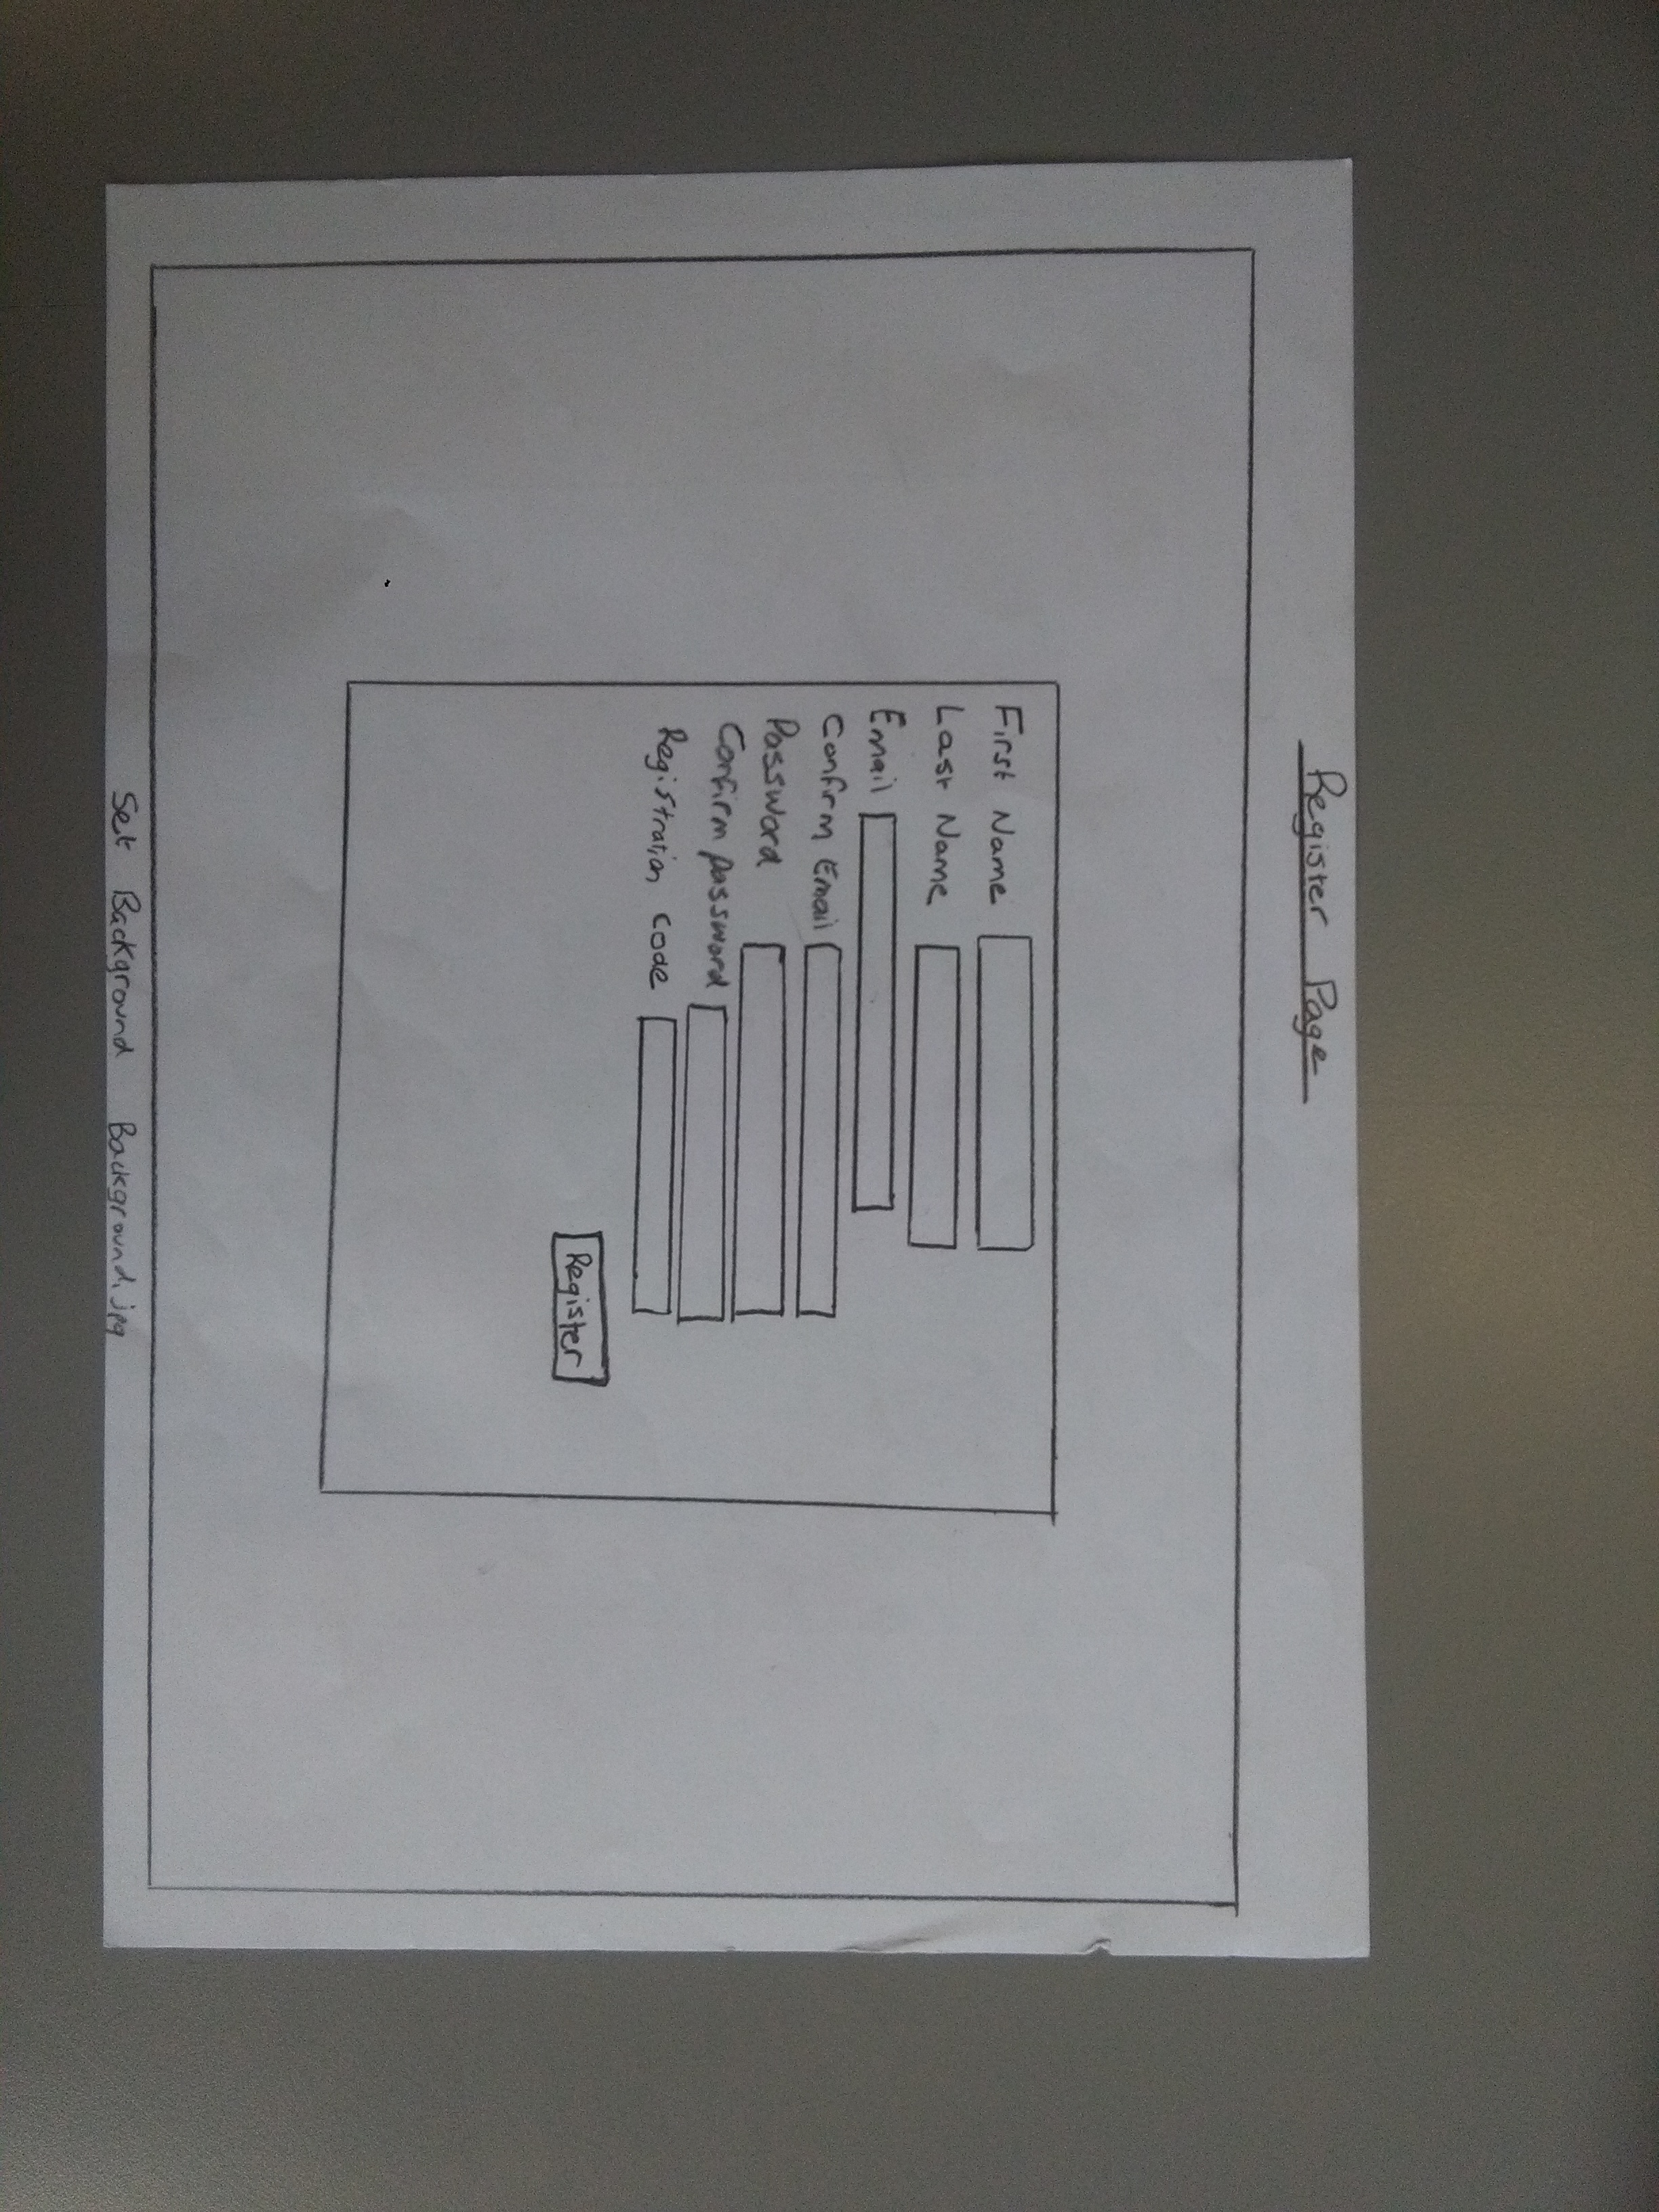 Register Page
First Name
Last Name
Email
Confirm Email
Password
Confirm password
Registration Code
Register
Set Background Background.jpg